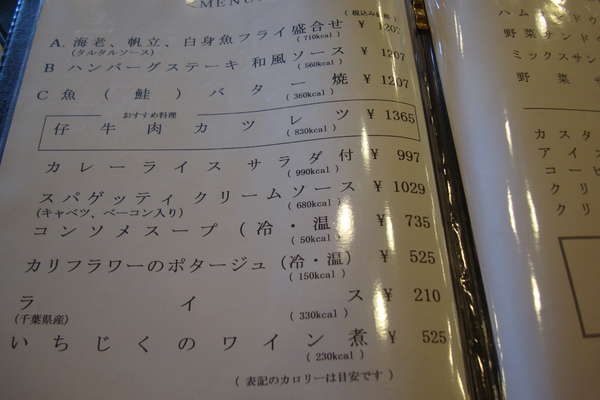 MENU
(税込み価格)
A. 海老、帆立、白身魚フライ盛合せ ¥ 1207
(タルタルソース) (710kcal)
B ハンバーグステーキ 和風ソース ¥ 1207
(560kcal)
C 魚(鮭)バター焼 ¥ 1207
(360kcal)
おすすめ料理
仔牛肉カツレツ ¥ 1365
(830kcal)
カレーライス サラダ付 ¥ 997
(990kcal)
スパゲッティ クリームソース ¥ 1029
(キャベツ、ベーコン入り) (680kcal)
コンソメスープ(冷・温) ¥ 735
(50kcal)
カリフラワーのポタージュ(冷・温) ¥ 525
(150kcal)
ライス ¥ 210
(千葉県産) (330kcal)
いちじくのワイン煮 ¥ 525
(230kcal)
(表記のカロリーは目安です)
ハム
野菜サンドウ
ミックスサン
野菜サ
カスタ
アイス
コーヒ
クリ
クリ